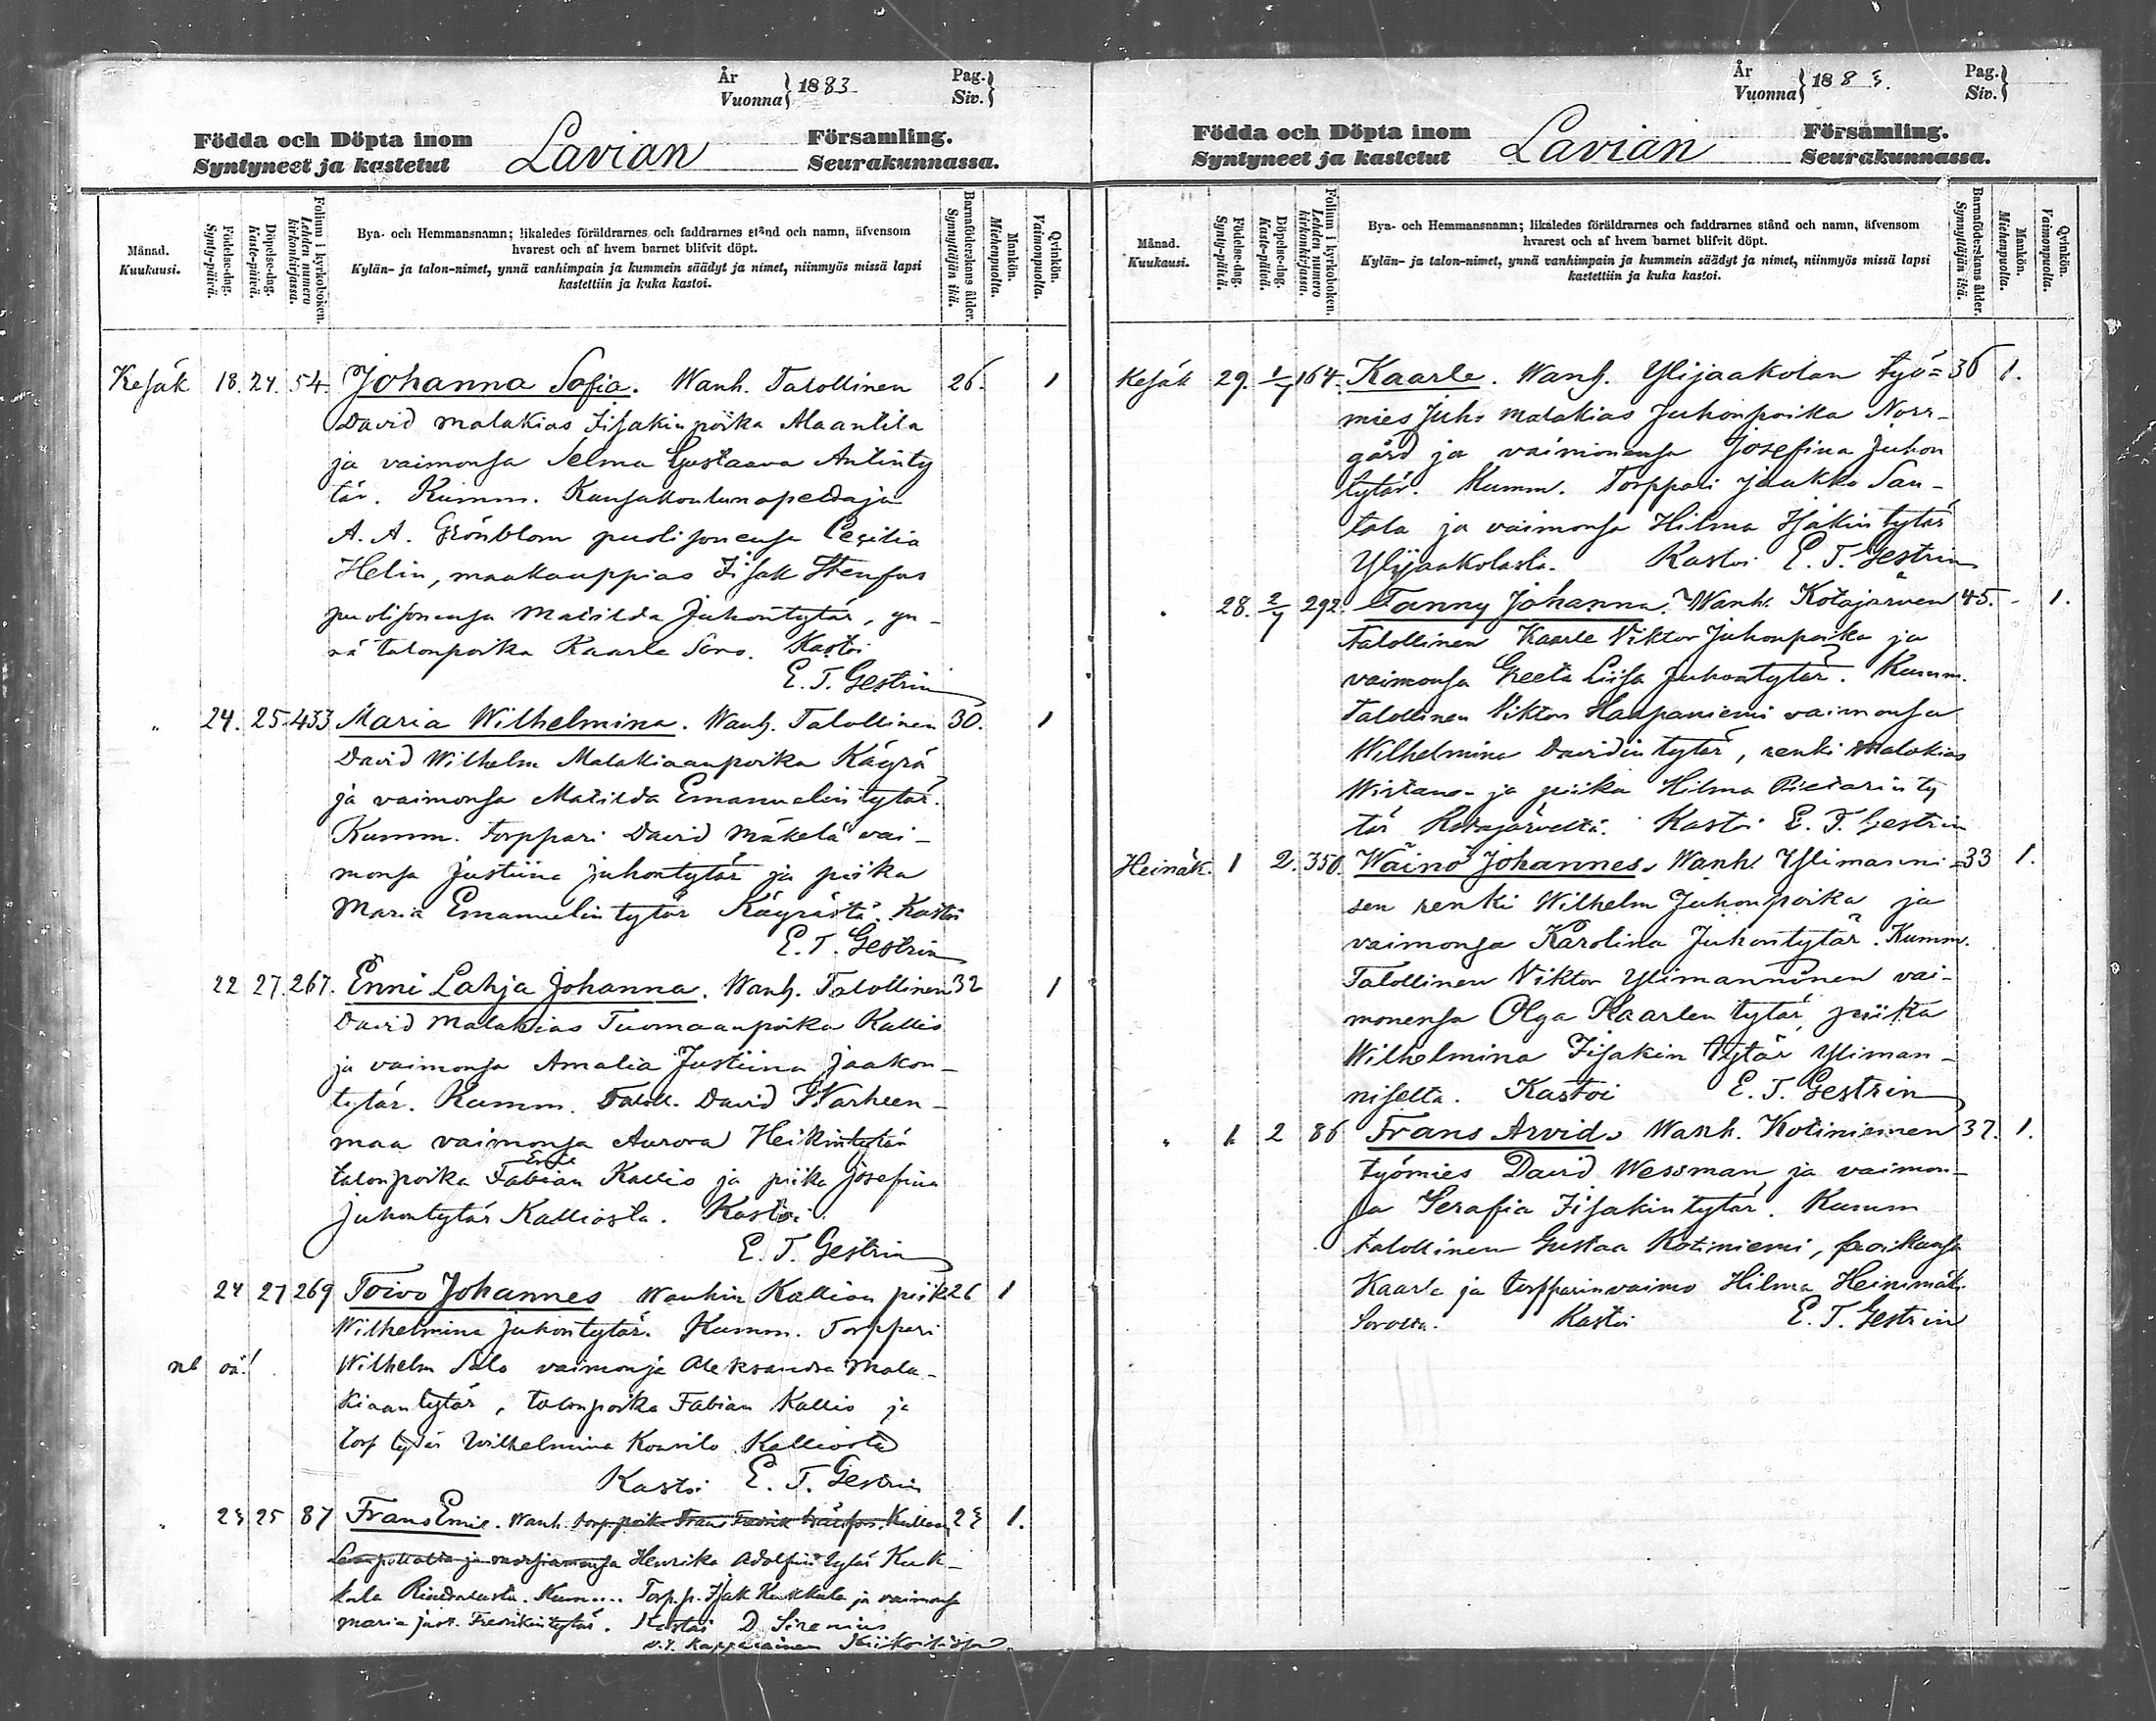 År
Vuonna} 1883
Pag.
Siv.}
Födda och Döpta inom
Syntyneet ja kastetut
Lavian
Församling.
Seurakunnassa.
Månad.
Kuukausi.
Födelse-dag.
Synty-päivä.
Döpelse-dag.
Kaste-päivä.
Folium i kyrkoboken.
Lehden numero kirkonkirjassa.
Bya- och Hemmansnamn; likaledes föräldrarnes och faddrarnes stånd och namn, äfvensom
hvarest och af hvem barnet blifvit döpt.
Kylän- ja talon-nimet, ynnä vanhimpain ja kummein säädyt ja nimet, niinmyös missä lapsi
kastettiin ja kuka kastoi.
Barnaföderskans ålder.
Synnyttäjän ikä.
Mankön.
Miehenpuolta.
Qvinkön.
Vaimonpuolta.
Kesäk 18. 24. 54. Johanna Sofia. Wanh. Talollinen 26. 1
David Malakias Iisakinpoika Alaantila
ja vaimonsa Selma Gustaava Antinty
tär. Kumm. Kansakoulunopettaja
A. A. Grönblom puolisonensa Cecilia
Helin, maakauppias Iisak Stenfors
puolisonensa Matilda Juhontytär, yn-
nä talonpoika Kaarle Sano. Kastoi
E. T. Gestrin
" 24. 25. 433 Maria Wilhelmina. Wanh. Talollinen 30. 1
David Wilhelm Malakiaanpoika Käyrä
ja vaimonsa Matilda Emanuelintytär.
Kumm. torppari David Mäkelä vai-
monsa Justiina Juhontytär ja piika
Maria Emanuelintytär Käyrästä. Kastoi
E. T. Gestrin
22 27. 267. Enni Lahja Johanna. Wanh. Talollinen 32 1
David Malakias Tuomaanpoika Kallio
ja vaimonsa Amalia Justiina Jaakon-
tytär. Kumm. Taloll. David Warheen-
maa vaimonsa Aurora Heikintytär
talonpoika Fabian Kallio ja piika Josefina
Juhontytär Kalliosta. Kastoi
E. T. Gestrin
24 27 269 Toivo Johannes Wanhin Kallion piik 26 1
Wilhelmina Juhontytär. Kumm. Torppari
Wilhelm Salo vaimonsa Aleksandra Mala-
kiaantytär, talonpoika Fabian Kallio ja
torp tytär Wilhelmina Kalliosta
Kastoi E. T. Gestrin
23 25 87 Frans Emil. Wanh. torp. poik. Frans 23 1.
Henrika Adolfintytär Kuk-
kula Kumm. Torpp. Isak Kukkula ja vaimonsa
Maria Just. Fredrikintytär. Kastoi D. Sirenius
v.t. Kappalainen
År
Vuonna} 1883.
Pag.
Siv.}
Födda och Döpta inom
Syntyneet ja kastetut
Lavian
Församling.
Seurakunnassa.
Månad.
Kuukausi.
Födelse-dag.
Synty-päivä.
Döpelse-dag.
Kaste-päivä.
Folium i kyrkoboken.
Lehden numero kirkonkirjassa.
Bya- och Hemmansnamn; likaledes föräldrarnes och faddrarnes stånd och namn, äfvensom
hvarest och af hvem barnet blifvit döpt.
Kylän- ja talon-nimet, ynnä vanhimpain ja kummein säädyt ja nimet, niinmyös missä lapsi
kastettiin ja kuka kastoi.
Barnaföderskans ålder.
Synnyttäjän ikä.
Mankön.
Miehenpuolta.
Qvinkön.
Vaimonpuolta.
Kesäk 29. 1/7 164. Kaarle. Wanh. Ylijaakolan työ= 36 1.
mies Juho Malakias Juhonpoika Norr-
gård ja vaimonensa Josefina Juhon
tytär. Kumm. Torppari Jaakko San-
tala ja vaimonsa Hilma Isakintytär
Ylijaakolasta. Kastoi E. T. Gestrin
" 28. 2/7 292. Fanny Johanna. Wanh. Kotajärven 45. - 1.
talollinen Kaarle Viktor Juhonpoika ja
vaimonsa Greeta Liisa Juhontytär. Kumm.
talollinen Viktor Haapaniemi vaimonsa
Wilhelmina Davidintytär, renki Malakias
ja piika Hilma Pietarinty
tär Kotajärveltä. Kastoi E. T. Gestrin
Heinäk. 1 2. 350. Wäinö Johannes. Wanh. Ylimanni= 33 1.
sen renki Wilhelm Juhonpoika ja
vaimonsa Karolina Juhontytär. Kumm.
Talollinen Viktor Ylimanninen vai-
monensa Olga Kaarlen tytär, piika
Wilhelmina Iisakin tytär Yliman-
niselta. Kastoi E. T. Gestrin
" 1. 2 86 Frans Arvid. Wanh. Kotiniemen 37. 1.
työmies David Wessman ja vaimon-
sa Serafia Iisakintytär. Kumm
talollinen Gustaa Kotiniemi, poikansa
Kaarle ja torpparinvaimo Hilma Heinimäki
Kastoi E. T. Gestrin